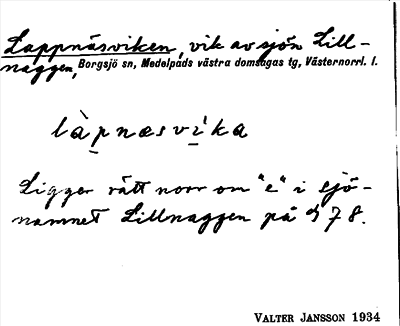 Lappnäsviken, vik av sjön Lill-
naggen, Borgsjö sn, Medelpads västra domsagas tg, Västernorrl. l.
làpnæsvìka
Ligger rätt norr om "e" i sjö-
namnet Lillnaggen på 78.
VALTER JANSSON 1934